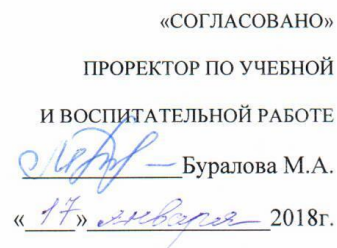 «СОГЛАСОВАНО»
ПРОРЕКТОР ПО УЧЕБНОЙ
И ВОСПИТАТЕЛЬНОЙ РАБОТЕ
Буралова М.А.
«17» января 2018г.